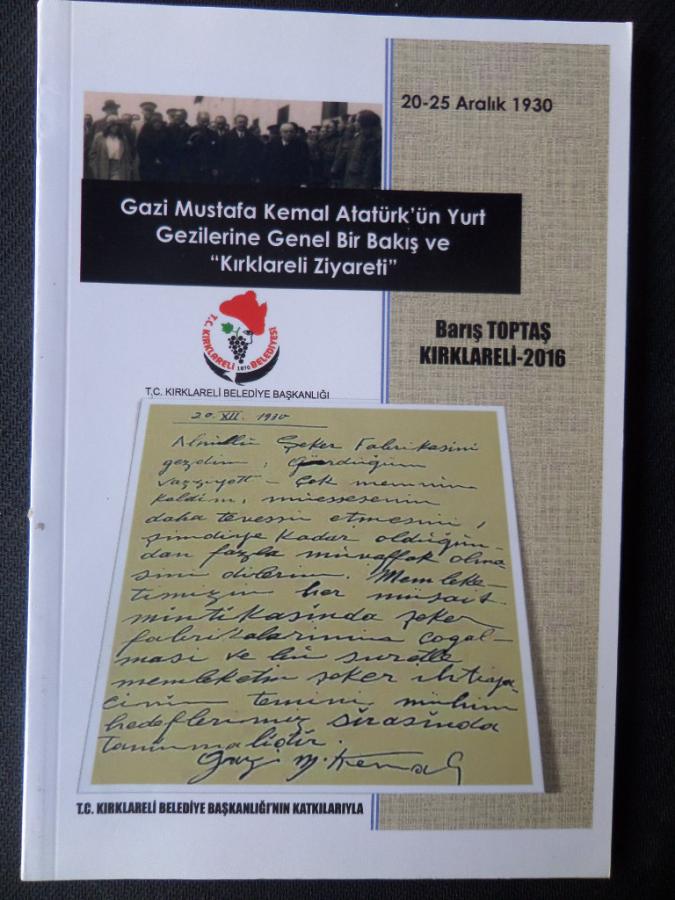 20-25 Aralık 1930
Gazi Mustafa Kemal Atatürk'ün Yurt
Gezilerine Genel Bir Bakış ve
"Kırklareli Ziyareti"
Barış TOPTAŞ
KIRKLARELİ-2016
T.C. KIRKLARELİ BELEDİYESİ
1870
T.C. KIRKLARELİ BELEDİYE BAŞKANLIĞI
20. XII. 1930
Alpullu Şeker Fabrikasini
gezdim; Gördüğüm
vaziyetten çok memnun
kaldim, müessesenin
daha tevessü etmesini,
şimdiye kadar olduğun-
dan fazla müvaffak olma
sini dilerim. Memleke-
timizin her müsait
mintikasinda şeker
fabrikalarimin çoğal-
masi ve bu suretle
memleketin şeker ihtiya-
cinin temini, mühim
hedeflerimiz sirasinda
taninmalidir.
Gazi M. Kemal
T.C. KIRKLARELİ BELEDİYE BAŞKANLIĞI'NIN KATKILARIYLA